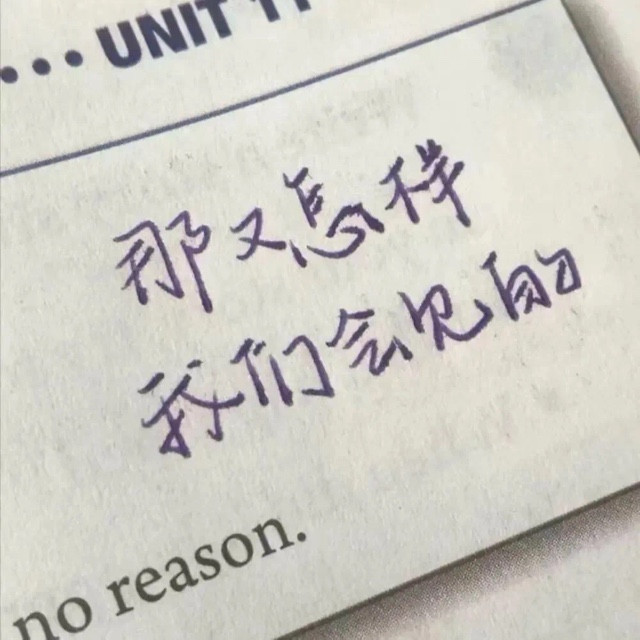 ••• UNIT 11
那又怎样
我们会见的
no reason.